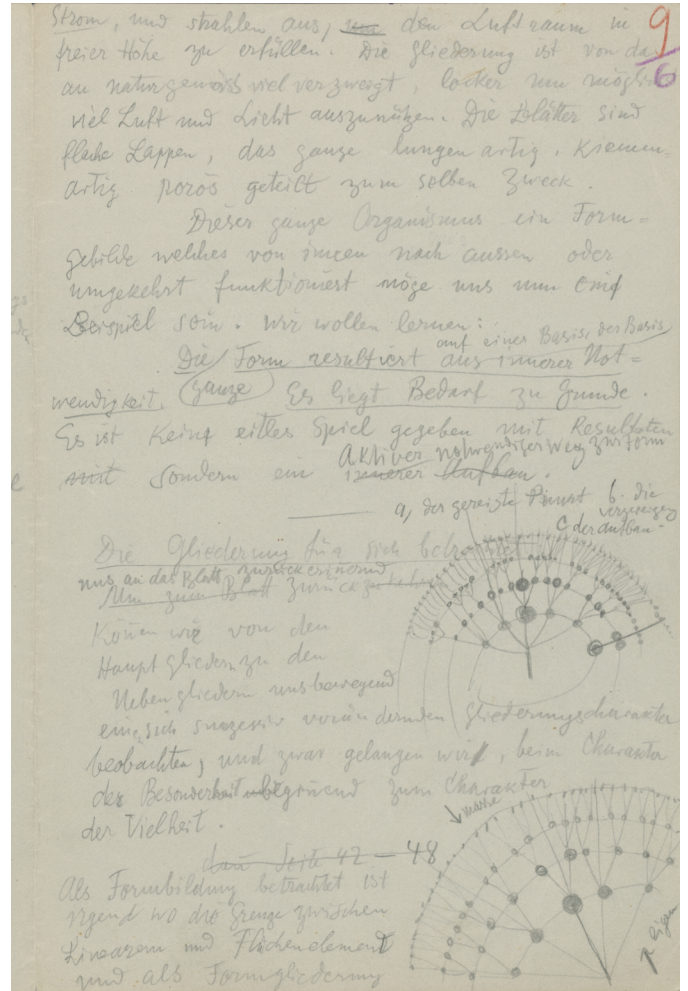 Strom, und strahlen aus, um den Luftraum in
freier Höhe zu erfüllen. Die Gliederung ist von da
an naturgemäss viel verzweigt, locker um möglichst
viel Luft und Licht auszunützen. Die Blätter sind
flache Lappen, das ganze lungenartig, Kiemen-
artig porös geteilt zum selben Zweck.
Dieser ganze Organismus ein Form=
gebilde welches von innen nach aussen oder
umgekehrt funktioniert möge uns nun ein
Beispiel sein. Wir wollen lernen:
auf einer Basis, der Basis
Die Form resultiert aus innerer Not=
wendigkeit. ganze Es liegt Bedarf zu Grunde.
Es ist kein eitles Spiel gegeben mit Resultaten
Aktiver notwendiger Weg zur Form
mit sondern ein innerer Aufbau.
a, der gereizte Punkt b. die
c der Aufbau
Die Gliederung für sich betrachtet
uns an das Blatt zurückerinnernd
Um zum Blatt zurück
Können wir von den
Hauptgliedern zu den
Nebengliedern uns bewegend
einen sich sukzessiv verändernden Gliederungscharakter
beobachten, und zwar gelangen wir, beim Charakter
der Besonderheit beginnend zum Charakter
der Vielheit.
masse
dann Seite 42 – 48
Als Formbildung betrachtet ist
irgend wo die Grenze zwischen
Linearem und Flächenelement
und als Formgliederung
eigen
9
6